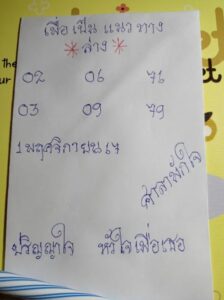 เพื่อเป็นแนวทาง
*ล่าง*
02 06 76
03 09 79
1 พฤศจิกายน 67
ศาลาพักใจ
ปริญญาใจ หัวใจเพื่อเธอ
the
our
et